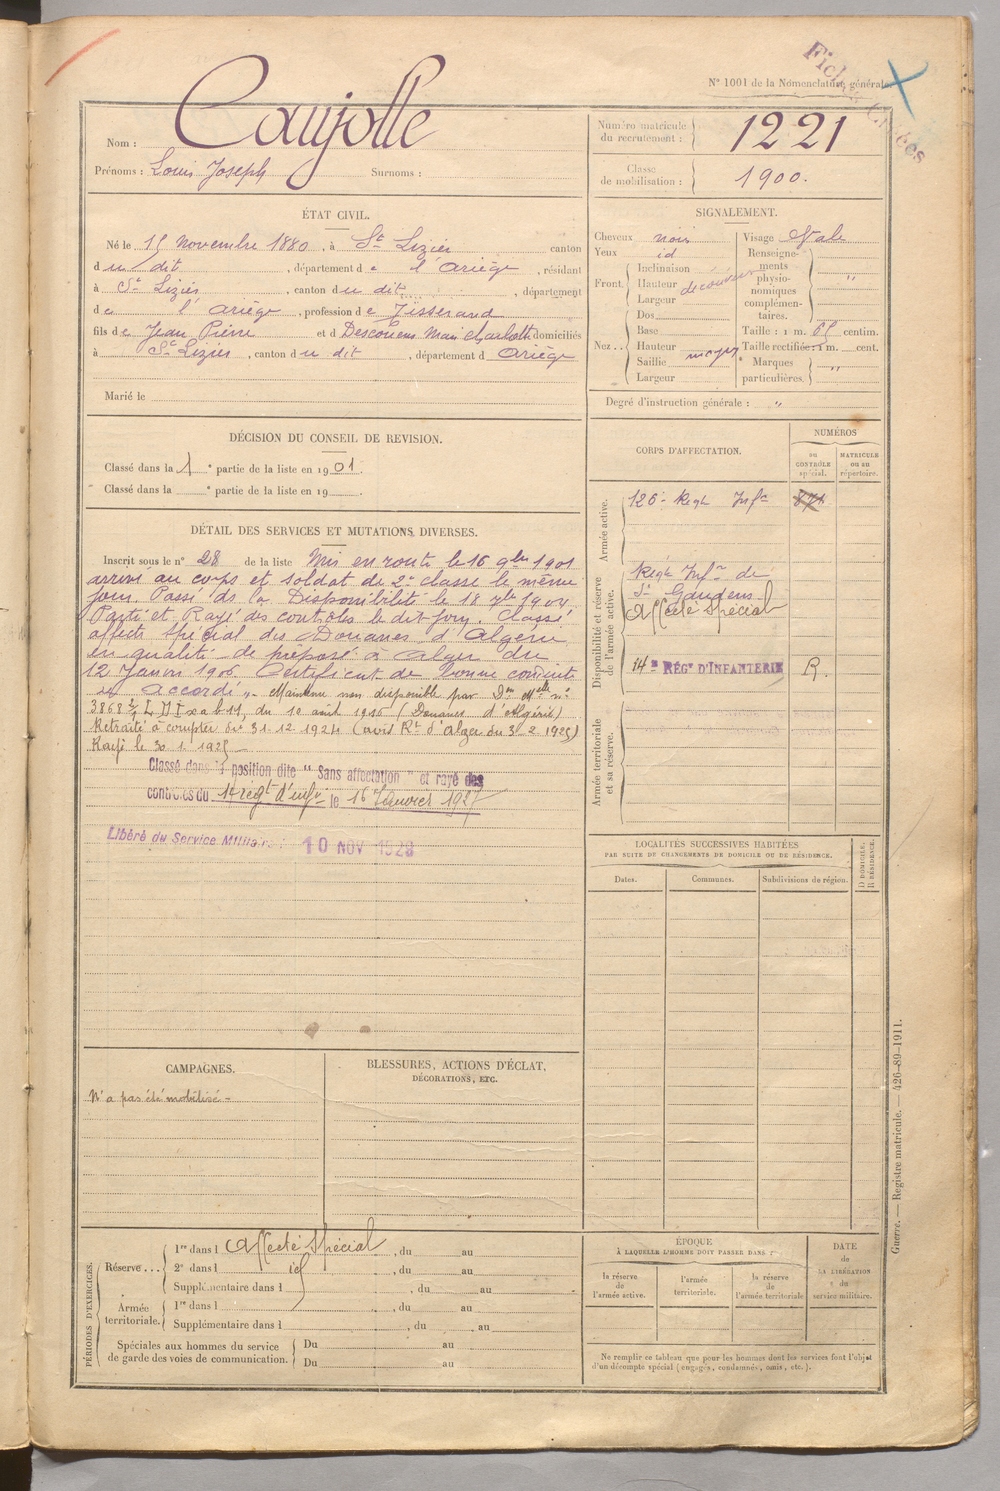 Fiches Croisées
N° 1001 de la Nomenclature générale.
Nom : Caujolle
Prénoms : Louis Joseph Surnoms :
Numéro matricule du recrutement : 1221
Classe de mobilisation : 1900.
ÉTAT CIVIL.
Né le 15 Novembre 1880, à St Lizier canton
du dit, département de l'Ariège, résidant
à St Lizier, canton du dit, département
de l'Ariège, profession de Tisserand
fils de Jean Pierre et d Marie Charlotte domiciliés
à St Lizier, canton du dit, département d Ariège
Marié le
SIGNALEMENT.
Cheveux noir
Yeux id
Front. Inclinaison
Hauteur découvert
Largeur
Nez.. Dos
Base
Hauteur
Saillie moyen
Largeur
Visage Ovale
Renseignements physionomiques complémentaires. "
Taille : 1 m. 65 centim.
Taille rectifiée : 1 m. cent.
Marques particulières. "
Degré d'instruction générale : "
DÉCISION DU CONSEIL DE REVISION.
Classé dans la 1 e partie de la liste en 1901.
Classé dans la e partie de la liste en 19
CORPS D'AFFECTATION.
NUMÉROS
OU CONTRÔLE spécial.
MATRICULE ou au répertoire.
Armée active.
126e Regt Infie 871
Disponibilité et réserve de l'armée active.
Regt Infie de
St Gaudens
Affecté Spécial
14e RÉGt D'INFANTERIE R.
Armée territoriale et sa réserve.
DÉTAIL DES SERVICES ET MUTATIONS DIVERSES.
Inscrit sous le n° 28 de la liste Mis en route le 16 9bre 1901
arrivé au corps et soldat de 2e classe le même
jour. Passé ds la Disponibilité le 18 7bre 1904
Parti et Rayé des contrôles le dit jour. Classé
affecté spécial des Douanes d'Algérie
en qualité de préposé à Alger du
12 Janvier 1906. Certificat de bonne conduite
accordé ". Maintenu non disponible par Don Melle n°
3868 du 10 août 1916 (Douanes d'Algérie)
Retraité à compter du 31.12.1924 (avis Rt d'Alger du 3.2.1925)
Rayé le 30.1.1925
Classé dans la position dite " Sans affectation " et rayé des
contrôles du 14e régt d'infie le 16 Janvier 1927
Libéré du Service Militaire : 10 NOV 1929
LOCALITÉS SUCCESSIVES HABITÉES
PAR SUITE DU CHANGEMENTS DE DOMICILE OU DE RÉSIDENCE.
Dates.
Communes.
Subdivisions de région.
D DOMICILE. R RÉSIDENCE.
CAMPAGNES.
N'a pas été mobilisé -
BLESSURES, ACTIONS D'ÉCLAT,
DÉCORATIONS, ETC.
PÉRIODES D'EXERCICES.
Réserve... 1re dans l Affecté Spécial, du au
2e dans l id, du au
Supplémentaire dans l , du au
Armée territoriale. 1re dans l , du au
Supplémentaire dans l , du au
Spéciales aux hommes du service de garde des voies de communication. Du au
Du au
ÉPOQUE
À LAQUELLE L'HOMME DOIT PASSER DANS :
la réserve de l'armée active.
l'armée territoriale.
la réserve de l'armée territoriale
DATE de LA LIBÉRATION du service militaire.
Ne remplir ce tableau que pour les hommes dont les services font l'objet
d'un décompte spécial (engagés, condamnés, omis, etc.).
Guerre. — Registre matricule. — 426-89-1911.